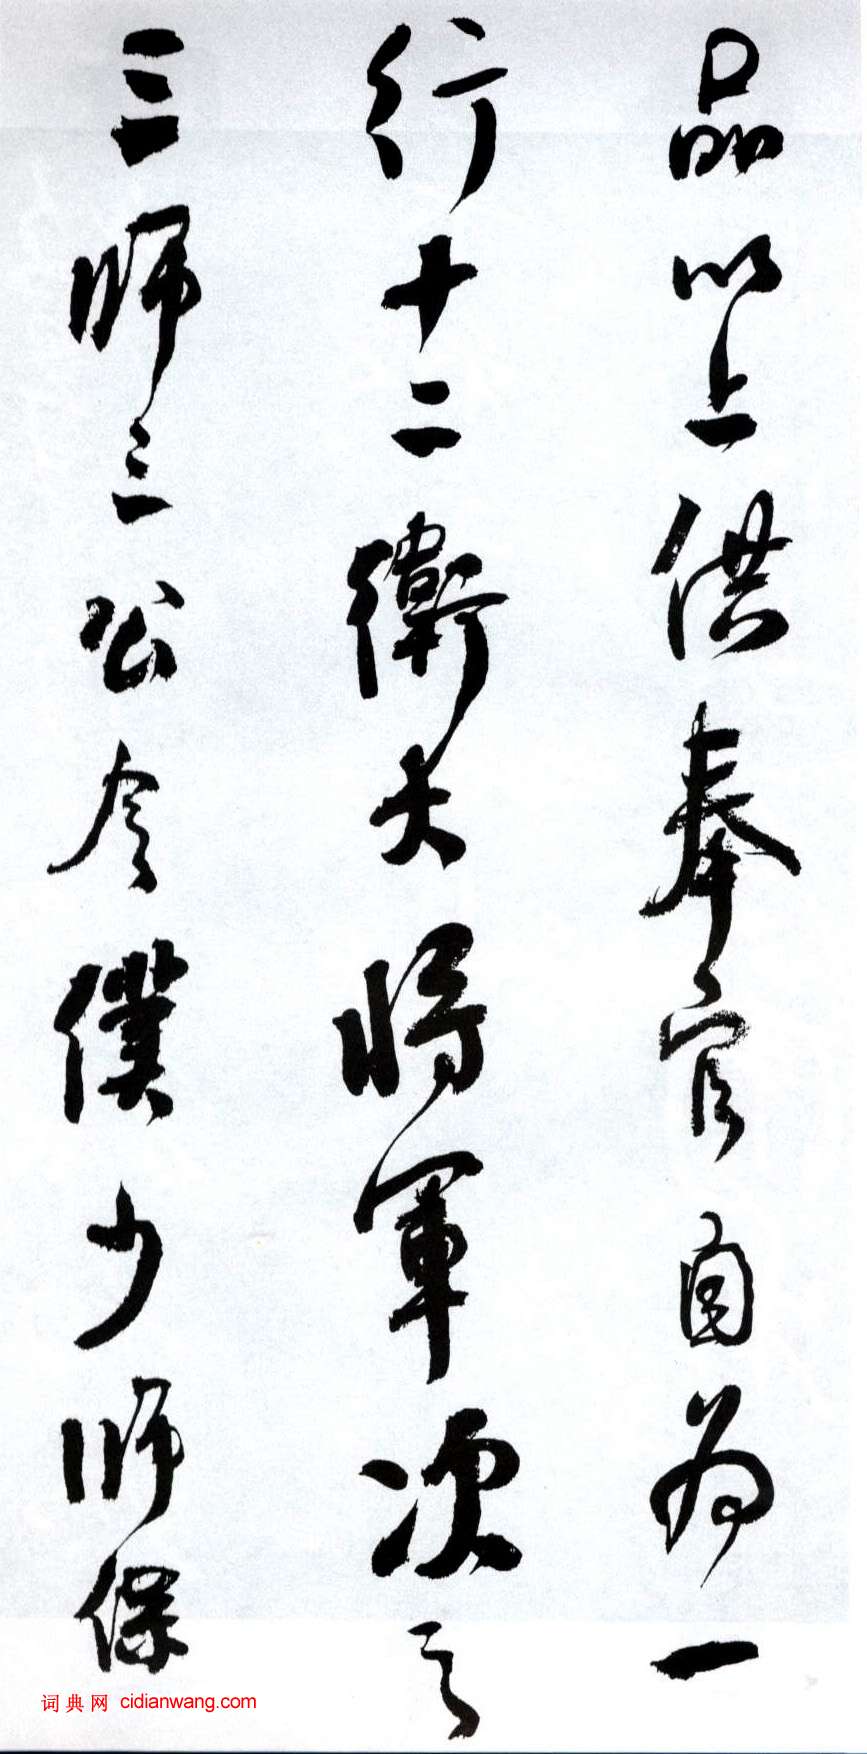 品以上供奉官自为一
行十二衛大将軍次之
三师三公令僕少师保
词典网 cidianwang.com